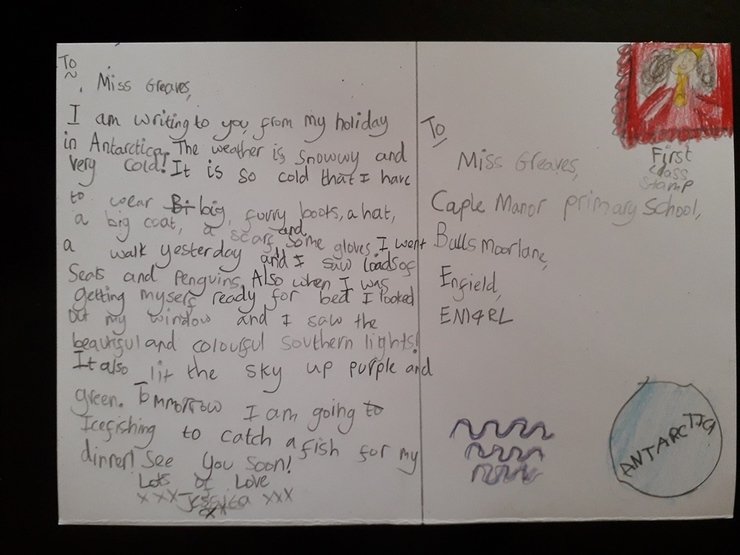 To
Miss Greaves,
I am writing to you from my holiday
in Antarctica. The weather is snowwy and
very cold! It is so cold that I have
to wear Bi big, furry boots, a hat,
a big coat, a scarf and some gloves. I went
a walk yesterday and I saw loads of
Seals and Penguins. Also when I was
getting myself ready for bed I looked
out my window and I saw the
beautiful and colourful Southern lights!
It also lit the sky up purple and
green. Tommorrow I am going to
Icefishing to catch a fish for my
dinner! See you soon!
Lots of Love
xxx Jessica xxx
To
Miss Greaves,
Caple Manor primary School,
Bulls moorlane,
Enfield,
EN14RL
First
class
stamp
ANTARCTICA